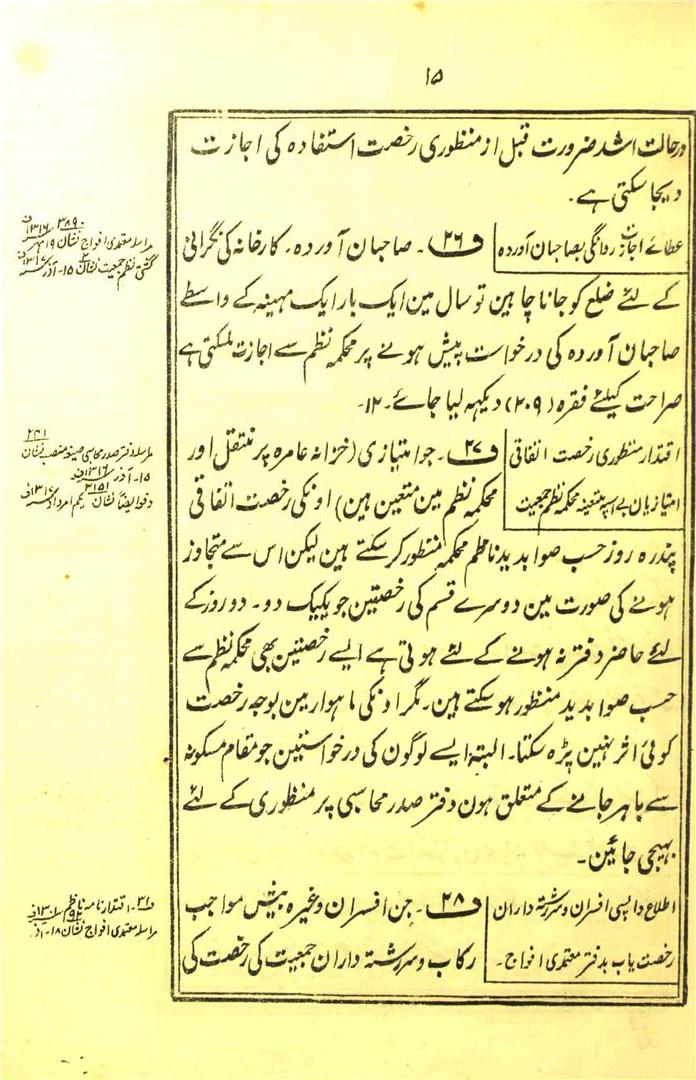 ۱۵
درحالت اشد ضرورت قبل از منظوری رخصت استفادہ کی اجازت
دیجا سکتی ہے۔
عطائے اجازت روانگی بصاحبان آوردہ
ف۲۶۔ صاحبان آوردہ۔ کارخانہ کی نگرانی
کے لئے ضلع کو جانا چاہین تو سال مین ایک بار ایک مہینہ کے واسطے
صاحبان آوردہ کی درخواست پیش ہونے پر محکمہ نظم سے اجازت ملسکتی ہے
صراحت کیلئے فقرہ (۲۰۹) دیکہہ لیا جائے۔ ۱۲۔
مراسلہ معتمدی افواج نشان ۳۸۹۰
گشتی نظم جمعیت نشان ۱۵۔ آذر
اقتدار منظوری رخصت اتفاقی
امتیازیان بے اسپہ متعینہ محکمہ نظم جمعیت
ف۲۷۔ جو امتیازی (خزانہ عامرہ پر منتقل اور
محکمہ نظم مین متعین ہین) اونکی رخصت اتفاقی
پندرہ روز حسب صوابدید ناظم محکمہ منظور کر سکتے ہین لیکن اس سے متجاوز
ہونے کی صورت مین دوسرے قسم کی رخصتین جو یکیک دو۔ دو روز کے
لئے حاضر دفتر نہ ہونے کے لئے ہوتی ہے ایسے رخصتین بھی محکمہ نظم سے
حسب صوابدید منظور ہو سکتے ہین۔ مگر اونکی ماہوار مین بوجہ رخصت
کوئی اثر نہین پڑہ سکتا۔ البتہ ایسے لوگون کی درخواستین جو مقام مسکونہ
سے باہر جانے کے متعلق ہون دفتر صدر محاسبی پر منظوری کے لئے
بہیجی جائین۔
مراسلہ دفتر صدر محاسبی صیغہ منصب نشان ۲۴۱
۱۵۔ آذر ۱۳۱۶ف
دفو ایضاً نشان ۲۱۵۱ یکم امرداد
اطلاع واپسی افسران و سررشتہ داران
رخصت یاب بدفتر معتمدی افواج۔
ف۲۸۔ جن افسران وغیرہ بیش مواجب
رکاب و سررشتہ داران جمعیت کی رخصت کی
ف۳۱۔ اقتدار نامہ ناظم
مراسلہ معتمدی افواج نشان ۱۸۔ آذر